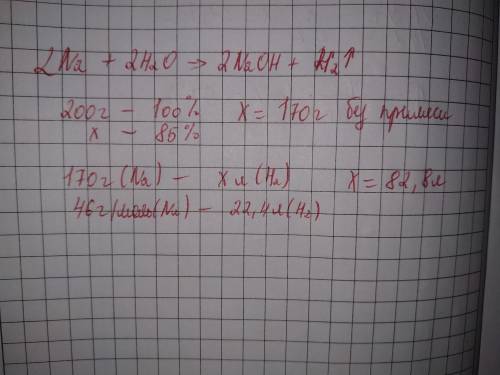 2Na + 2H2O → 2NaOH + H2↑
200г – 100% x = 170г без примеси
x – 85%
170г (Na) – x л (H2) x = 82,8л
46г/моль(Na) – 22,4л(H2)